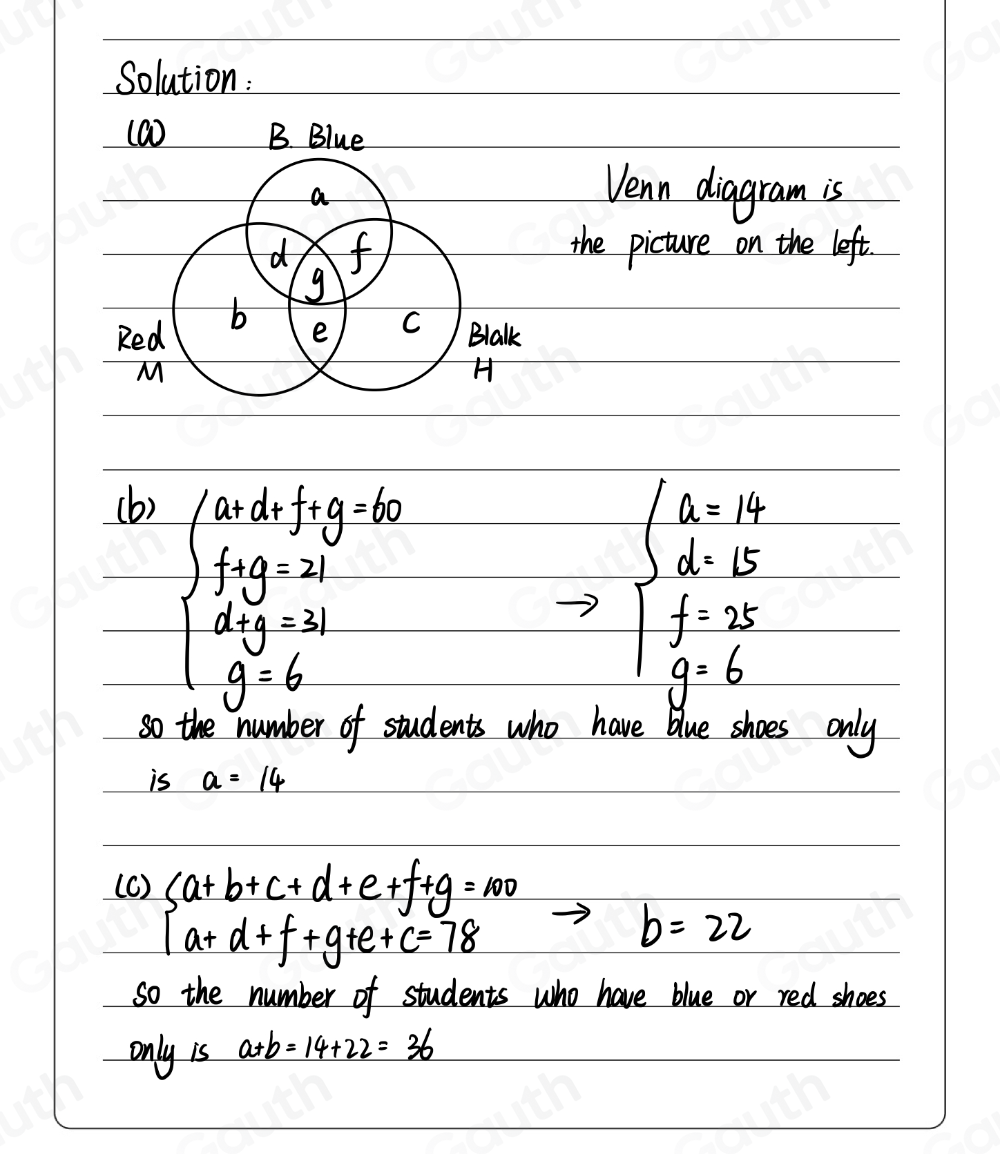 Solution:
(a) B. Blue
Venn diagram is
the picture on the left.
a
d f
g
b e c
Red
M
Blalk
H
(b) a+d+f+g=60
f+g=21
d+g=31
g=6
→
a=14
d=15
f=25
g=6
so the number of students who have blue shoes only
is a=14
(c) a+b+c+d+e+f+g=100
a+d+f+g+e+c=78
→ b=22
so the number of students who have blue or red shoes
only is a+b=14+22=36